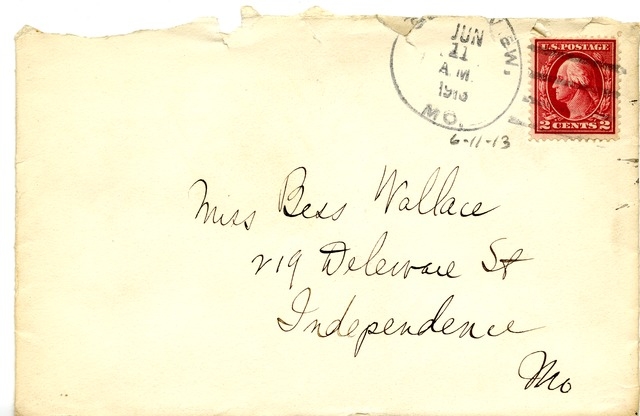 JUN
11
A.M.
1913
MO.
U.S. POSTAGE
2 CENTS 2
6-11-13
Miss Bess Wallace
219 Deleware St
Independence
Mo